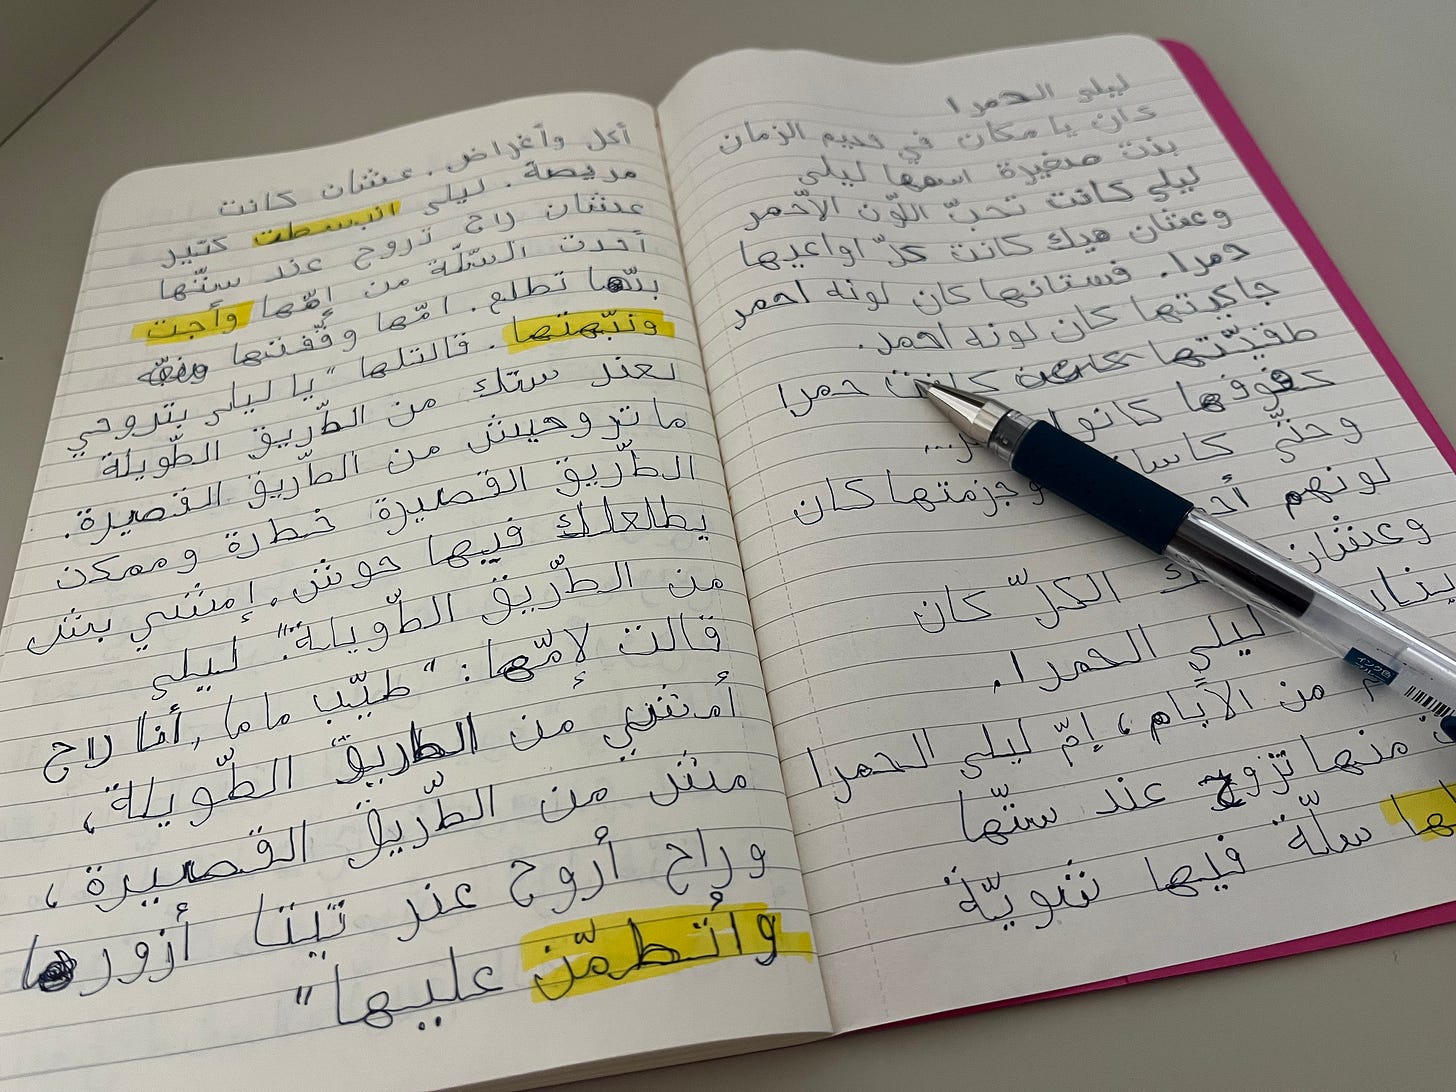 ليلى الحمرا
كان يا مكان في قديم الزمان
بنت صغيرة اسمها ليلى
ليلى كانت تحبّ اللّون الأحمر
وعشان هيك كانت كلّ اواعيها
حمرا. فستانها كان لونه احمر
جاكيتها كان لونه احمر.
طقيّتها كانت حمرا
كفوفها كانوا
وحتّى وجزمتها كان
لونهم
وعشان الكلّ كان
ليلى الحمرا.
من الأيام، إمّ ليلى الحمرا
منها تروح عند ستّها
سلّة فيها شويّة
أكل وأغراض. عشان كانت
مريضة. ليلى انبسطت كتير
عشان راح تروح عند ستّها
أخدت السّلّة من امّها وأجت
بدّها تطلع. امّها وقّفتها
ونبّهتها. قالتلها "يا ليلى بتروحي
لعند ستك من الطّريق الطّويلة
ما تروحيش من الطّريق القصيرة.
الطّريق القصيرة خطرة وممكن
يطلعلك فيها حوش. إمشي بش
من الطّريق الطّويلة." ليلى
قالت لإمّها: "طيّب ماما, أنا راح
أمشي من الطريق الطّويلة،
مش من الطّريق القصيرة،
وراح أروح عند تيتا أزورها
واتطمّن عليها"
インク